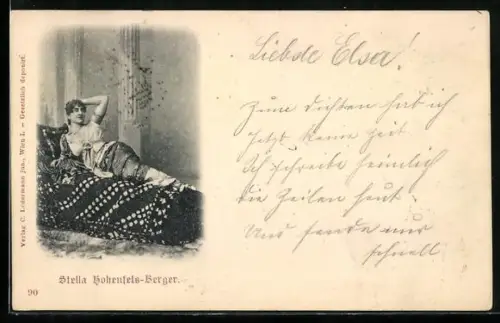 Verlag C. Ledermann jun., Wien I. — Gesetzlich deponirt.
Stella Hohenfels-Berger.
90
Liebde Elsa!
Zum dichten hab ich
Jetzt keine Zeit
Ich schreibe heimlich
die Zeilen heut.
Und sende nur
schnell